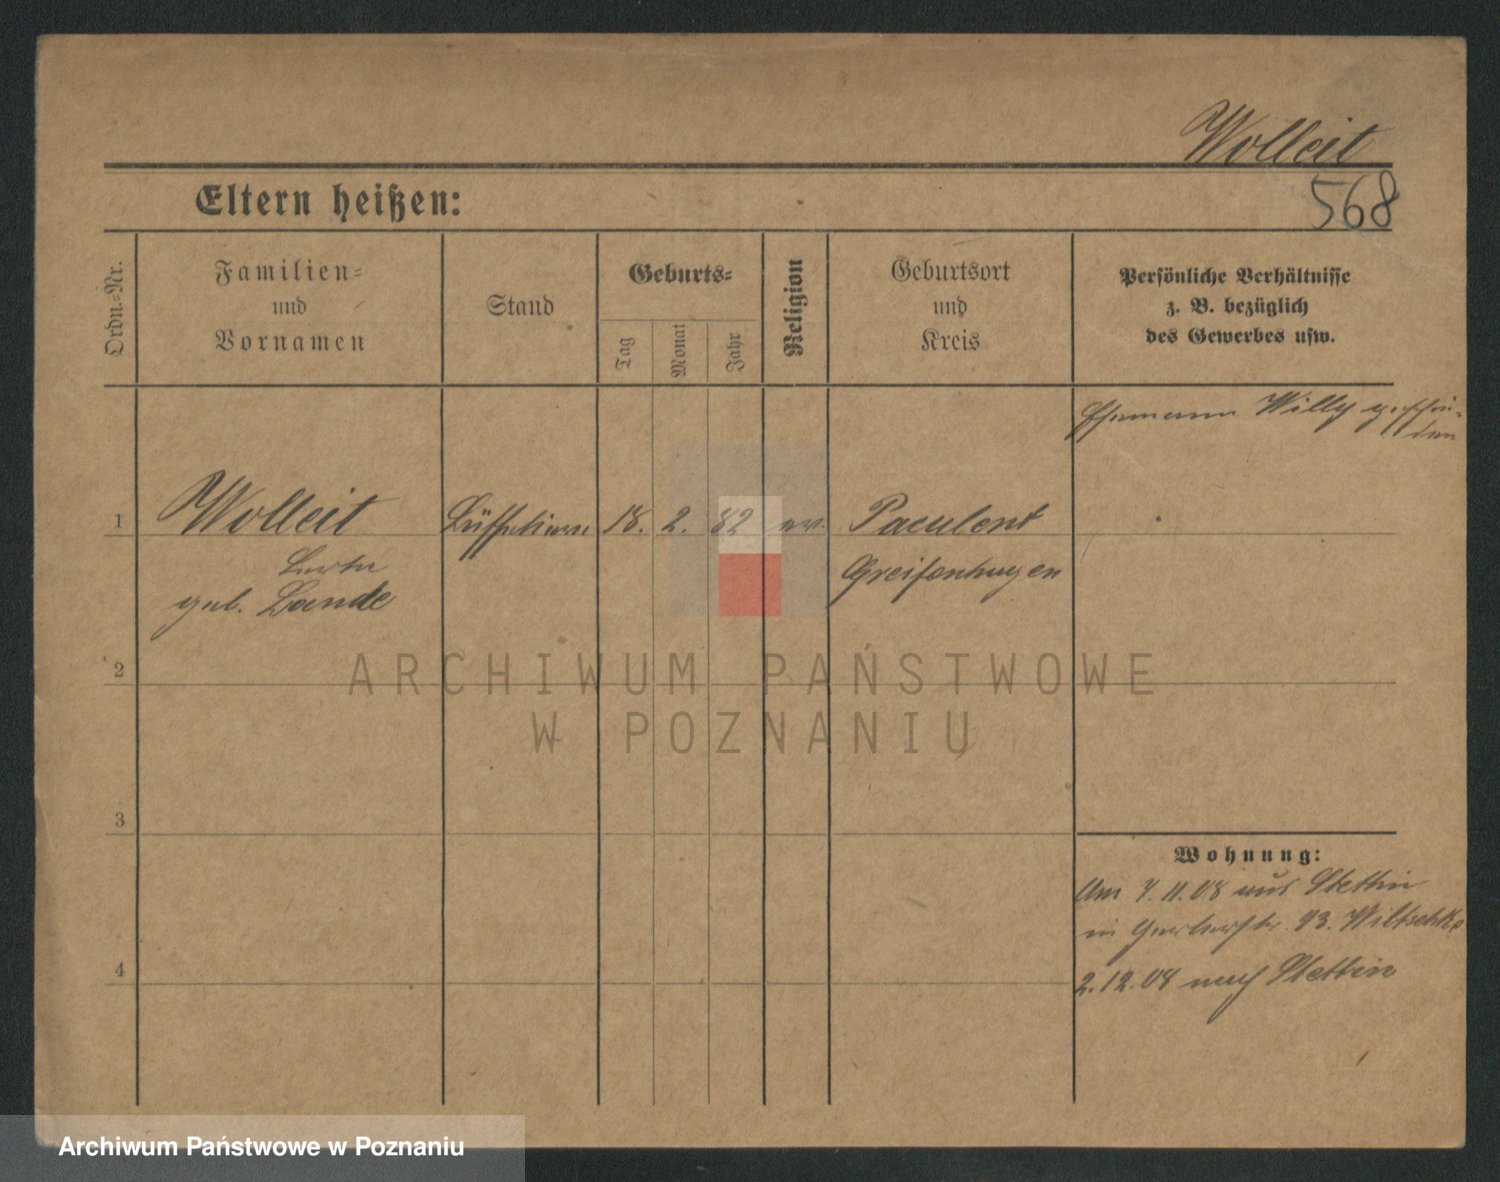 Wolleit
Eltern heißen:
568
Ordn.-Nr.
Familien-
und
Vornamen
Stand
Geburts-
Tag
Monat
Jahr
Religion
Geburtsort
und
Kreis
Persönliche Verhältnisse
z. B. bezüglich
des Gewerbes usw.
Ehemann Willy geschie-
den
1
Wolleit
geb. Lande
18. 2. 82 ev.
Paculent
Greifenhagen
2
ARCHIWUM PAŃSTWOWE
W POZNANIU
3
Wohnung:
Am 7.11.08 aus Stettin
in Gerberstr. 43. Wiltschke
4
2.12.08 nach Stettin
Archiwum Państwowe w Poznaniu